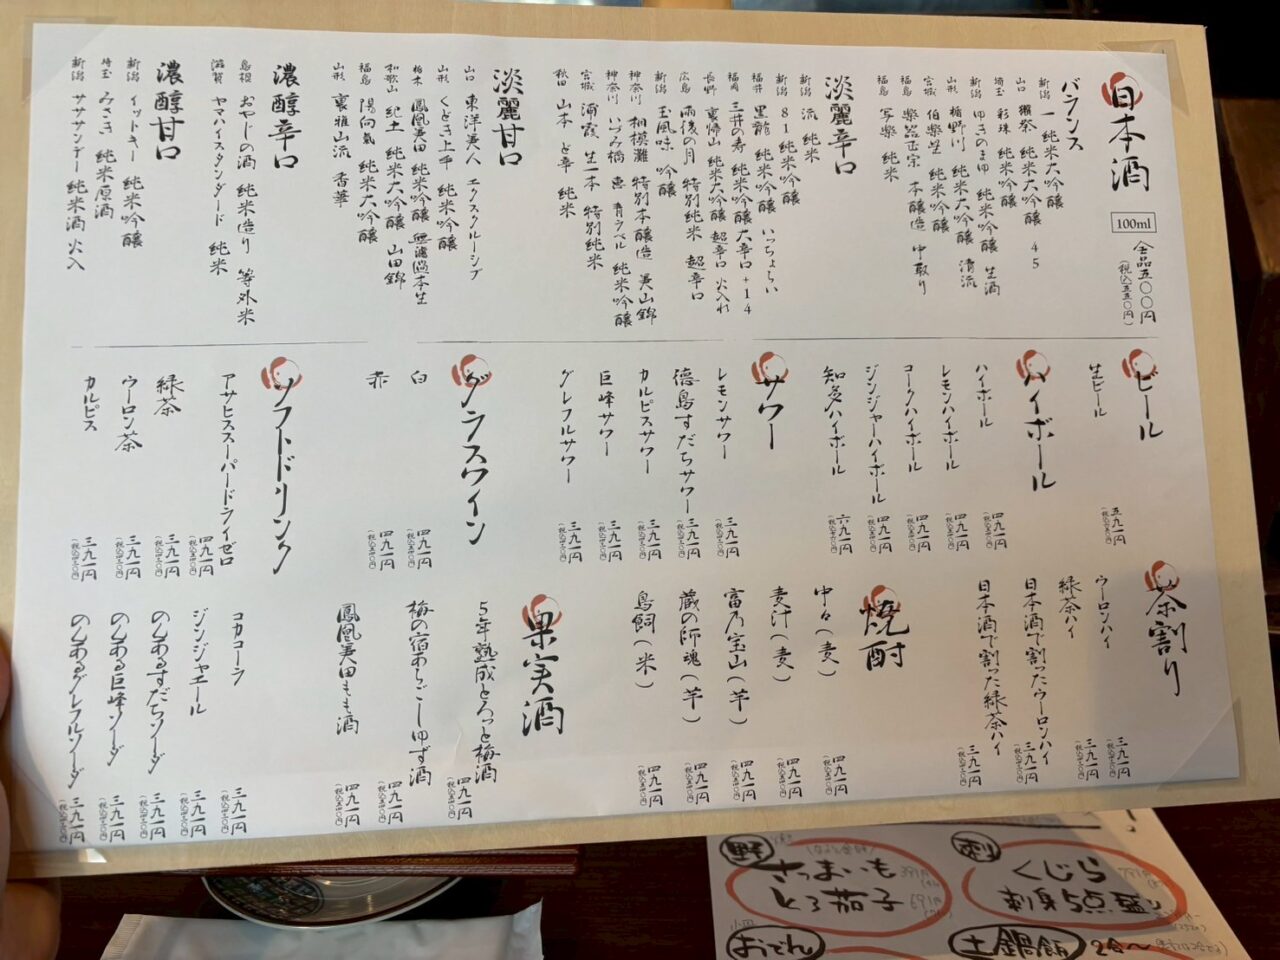 日本酒
100ml
全品五〇〇円
(税込五五〇円)
バランス
新潟 一 純米大吟醸
山口 獺祭 純米大吟醸 45
埼玉 彩珠 純米吟醸
新潟 ゆきのまゆ 純米吟醸 生酒
山形 楯野川 純米大吟醸 清流
宮城 伯楽星 純米吟醸
福島 楽器正宗 本醸造 中取り
福島 写楽 純米
淡麗辛口
新潟 流 純米
新潟 81 純米吟醸
福井 黒龍 純米吟醸 いっちょらい
福岡 三井の寿 純米吟醸 大辛口+14
長野 裏帰山 純米大吟醸 超辛口 火入れ
広島 雨後の月 特別純米 超辛口
新潟 玉風味 吟醸
神奈川 相模灘 特別本醸造 美山錦
神奈川 いづみ橋 恵 青ラベル 純米吟醸
宮城 浦霞 生一本 特別純米
秋田 山本 ど辛 純米
淡麗甘口
山口 東洋美人 エクスクルーシブ
山形 くどき上手 純米吟醸
栃木 鳳凰美田 純米吟醸 無濾過本生
和歌山 紀土 純米大吟醸 山田錦
福島 陽向氣 純米大吟醸
山形 裏雅山流 香華
濃醇辛口
島根 おやじの酒 純米造り 等外米
滋賀 ヤマハイスタンダード 純米
濃醇甘口
新潟 イットキー 純米吟醸
埼玉 みさき 純米原酒
新潟 サササンデー 純米酒 火入
ビール
生ビール 五九一円
ハイボール
ハイボール 四九一円
レモンハイボール 四九一円
コークハイボール 四九一円
ジンジャーハイボール 四九一円
知多ハイボール 六九一円
サワー
レモンサワー 三九一円
徳島すだちサワー 三九一円
カルピスサワー 三九一円
巨峰サワー 三九一円
グレフルサワー 三九一円
グラスワイン
白 四九一円
赤 四九一円
ソフトドリンク
アサヒスーパードライゼロ 四九一円
緑茶 三九一円
ウーロン茶 三九一円
カルピス 三九一円
茶割り
ウーロンハイ 三九一円
緑茶ハイ 三九一円
日本酒で割ったウーロンハイ 三九一円
日本酒で割った緑茶ハイ 三九一円
焼酎
中々(麦) 四九一円
麦汁(麦) 四九一円
富乃宝山(芋) 四九一円
蔵の師魂(芋) 四九一円
鳥飼(米) 四九一円
果実酒
5年熟成とろっと梅酒 四九一円
梅の宿あらごしゆず酒 四九一円
鳳凰美田もも酒 四九一円
コカコーラ 三九一円
ジンジャエール 三九一円
のんあるすだちソーダ 三九一円
のんある巨峰ソーダ 三九一円
のんあるグレフルソーダ 三九一円
野
さつまいも
とろ茄子 691円
刺
くじら
刺身5点盛り
おでん
土鍋飯 2合〜